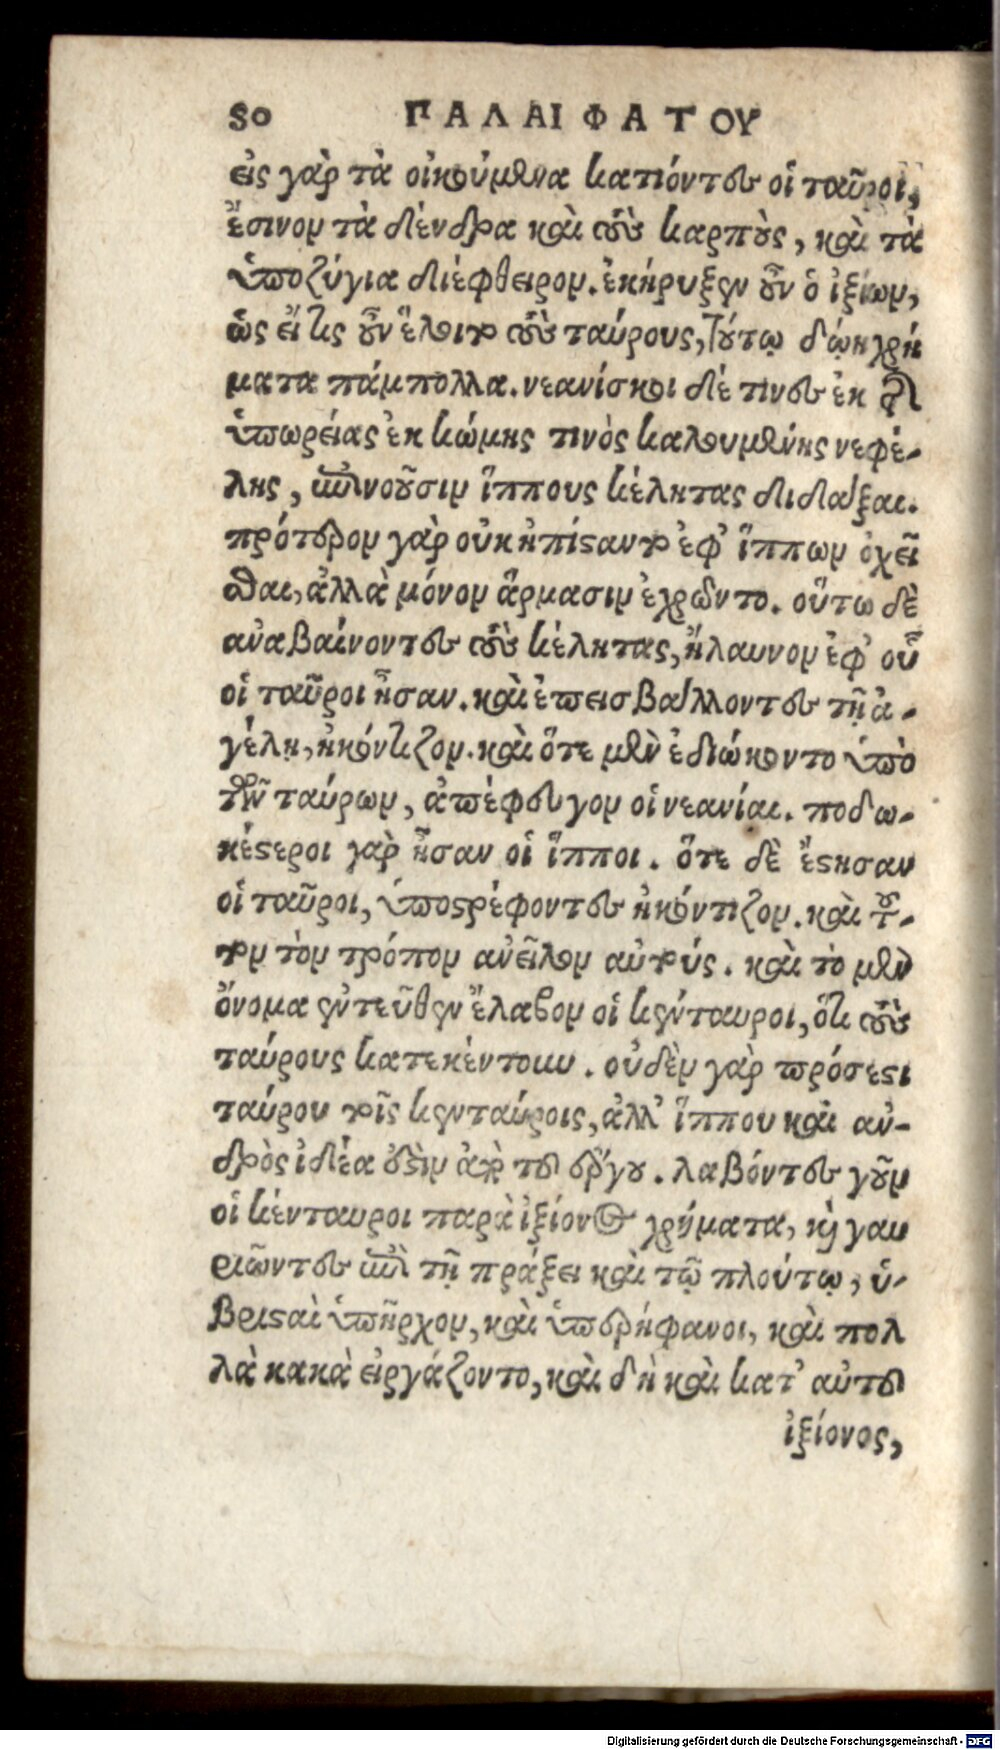 50 ΠΑΛΑΙΦΑΤΟΥ
εἰς γὰρ τὰ οἰκούμενα κατιόντες οἱ ταῦροι,
ἔσινον τὰ δένδρα καὶ τοὺς καρποὺς, καὶ τὰ
ὑποζύγια διέφθειρον. ἐκήρυξεν οὖν ὁ ἰξίων,
ὡς εἴ τις οὖν ἕλοιτο τοὺς ταύρους, τούτῳ δώῃ χρή
ματα πάμπολλα. νεανίσκοι δέ τινες ἐκ τῆς
ὑπωρείας ἐκ κώμης τινὸς καλουμένης νεφέ-
λης, ἐπινοοῦσιν ἵππους κέλητας διδάξαι.
πρότερον γὰρ οὐκ ἠπίσαντο ἐφ' ἵππων ὀχεῖ
σθαι, ἀλλὰ μόνον ἅρμασιν ἐχρῶντο. οὕτω δὲ
ἀναβαίνοντες τοὺς κέλητας, ἤλαυνον ἐφ' οὗ
οἱ ταῦροι ἦσαν. καὶ ἐπεισβάλλοντες τῇ ἀ-
γέλῃ, ἠκόντιζον. καὶ ὅτε μὲν ἐδιώκοντο ὑπὸ
τῶν ταύρων, ἀπέφευγον οἱ νεανίαι. ποδω-
κέστεροι γὰρ ἦσαν οἱ ἵπποι. ὅτε δὲ ἔστησαν
οἱ ταῦροι, ὑποστρέφοντες ἠκόντιζον. καὶ τοῦ-
τον τὸν τρόπον ἀνεῖλον αὐτούς. καὶ τὸ μὲν
ὄνομα ἐντεῦθεν ἔλαβον οἱ κένταυροι, ὅτι τοὺς
ταύρους κατεκέντουν. οὐδὲν γὰρ πρόσεστι
ταύρου τοῖς κενταύροις, ἀλλ' ἵππου καὶ ἀν-
δρὸς ἰδέα ἐστὶν ἀπὸ τοῦ ἔργου. λαβόντες γοῦν
οἱ κένταυροι παρὰ ἰξίονος χρήματα, καὶ γαυ
ριῶντες ἐπὶ τῇ πράξει καὶ τῷ πλούτῳ, ὑ-
βρισταὶ ὑπῆρχον, καὶ ὑπερήφανοι, καὶ πολ
λὰ κακὰ εἰργάζοντο, καὶ δὴ καὶ κατ' αὐτοῦ
ἰξίονος,
Digitalisierung gefördert durch die Deutsche Forschungsgemeinschaft - DFG